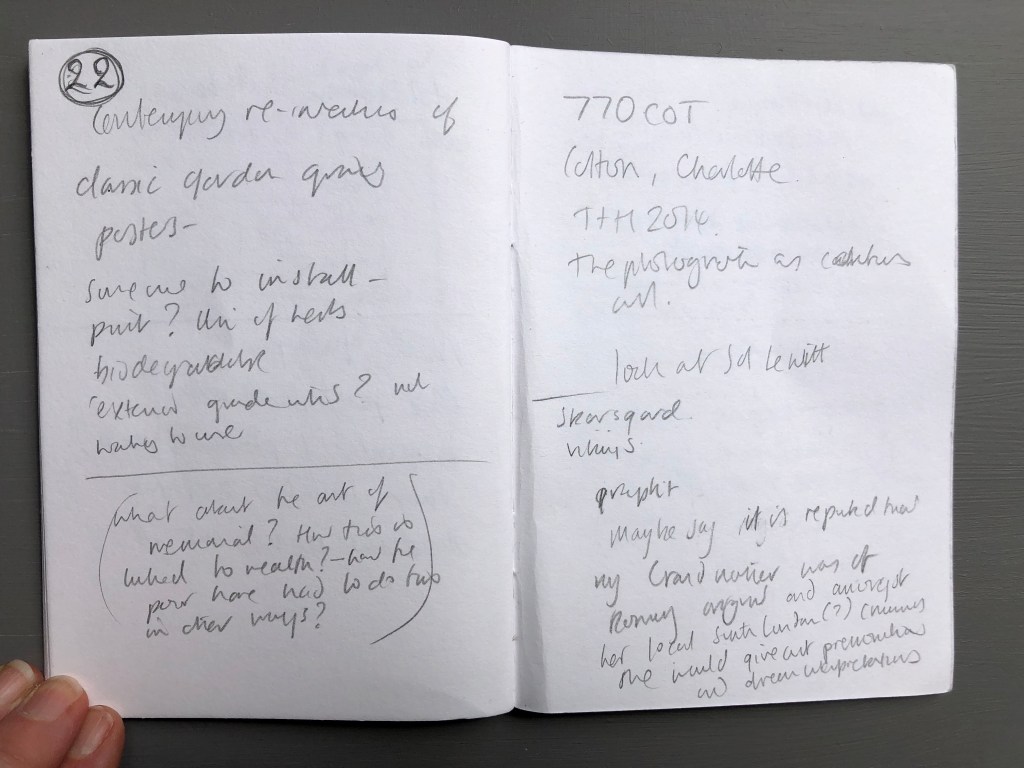 22
Contemporary re-inventions of
classic garden
posters -
someone to install -
print?
biodegradable
making to use
(What about the art of
memorial? How this is
linked to wealth? - how the
poor have had to do this
in other ways?)
770 COT
Cotton, Charlotte.
T+H 2014.
The photograph as contemporary
art.
look at Sol Lewitt
Skarsgard.
Vikings.
prophet
Maybe say it is reputed that
my Grandmother was of
Romany origins and amongst
her local South London (?) community
she would give out premonitions
and dream interpretations